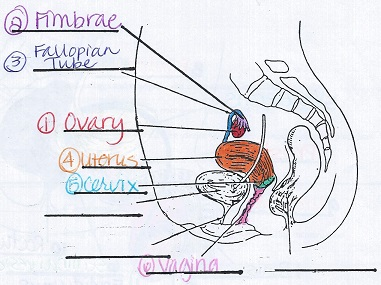 ② Fimbrae
③ Fallopian
Tube
① Ovary
④ Uterus
⑤ Cervix
⑥ Vagina